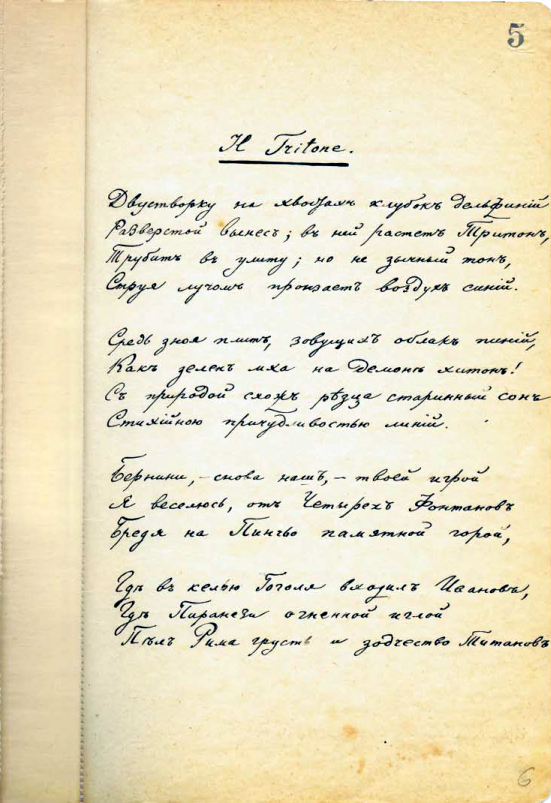 5
Il Tritone.
Двустворку на хвостахъ клубокъ дельфиній
Разверстой вынесъ; въ ней растетъ Тритонъ,
Трубитъ въ улиту; но не зычный тонъ,
Струя лучомъ пронзаетъ воздухъ синій.
Средь зноя плитъ, зовущихъ облакъ пиній,
Какъ зеленъ мха на демонѣ хитонъ!
Съ природой схожъ рѣзца старинный сонъ
Стихійною причудливостью линій.
Бернини, – снова нашъ, – твоей игрой
Я веселюсь, отъ Четырехъ Фонтановъ
Бредя на Пинчьо памятной горой,
Гдѣ въ келью Гоголя входилъ Ивановъ,
Гдѣ Пиранези огненной иглой
Пѣлъ Рима грусть и зодчество Титановъ
6